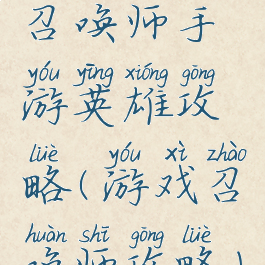 召唤师手
yóu yīng xióng gōng
游英雄攻
lüè yóu xì zhào
略(游戏召
huàn shī gōng lüè
唤师攻略)